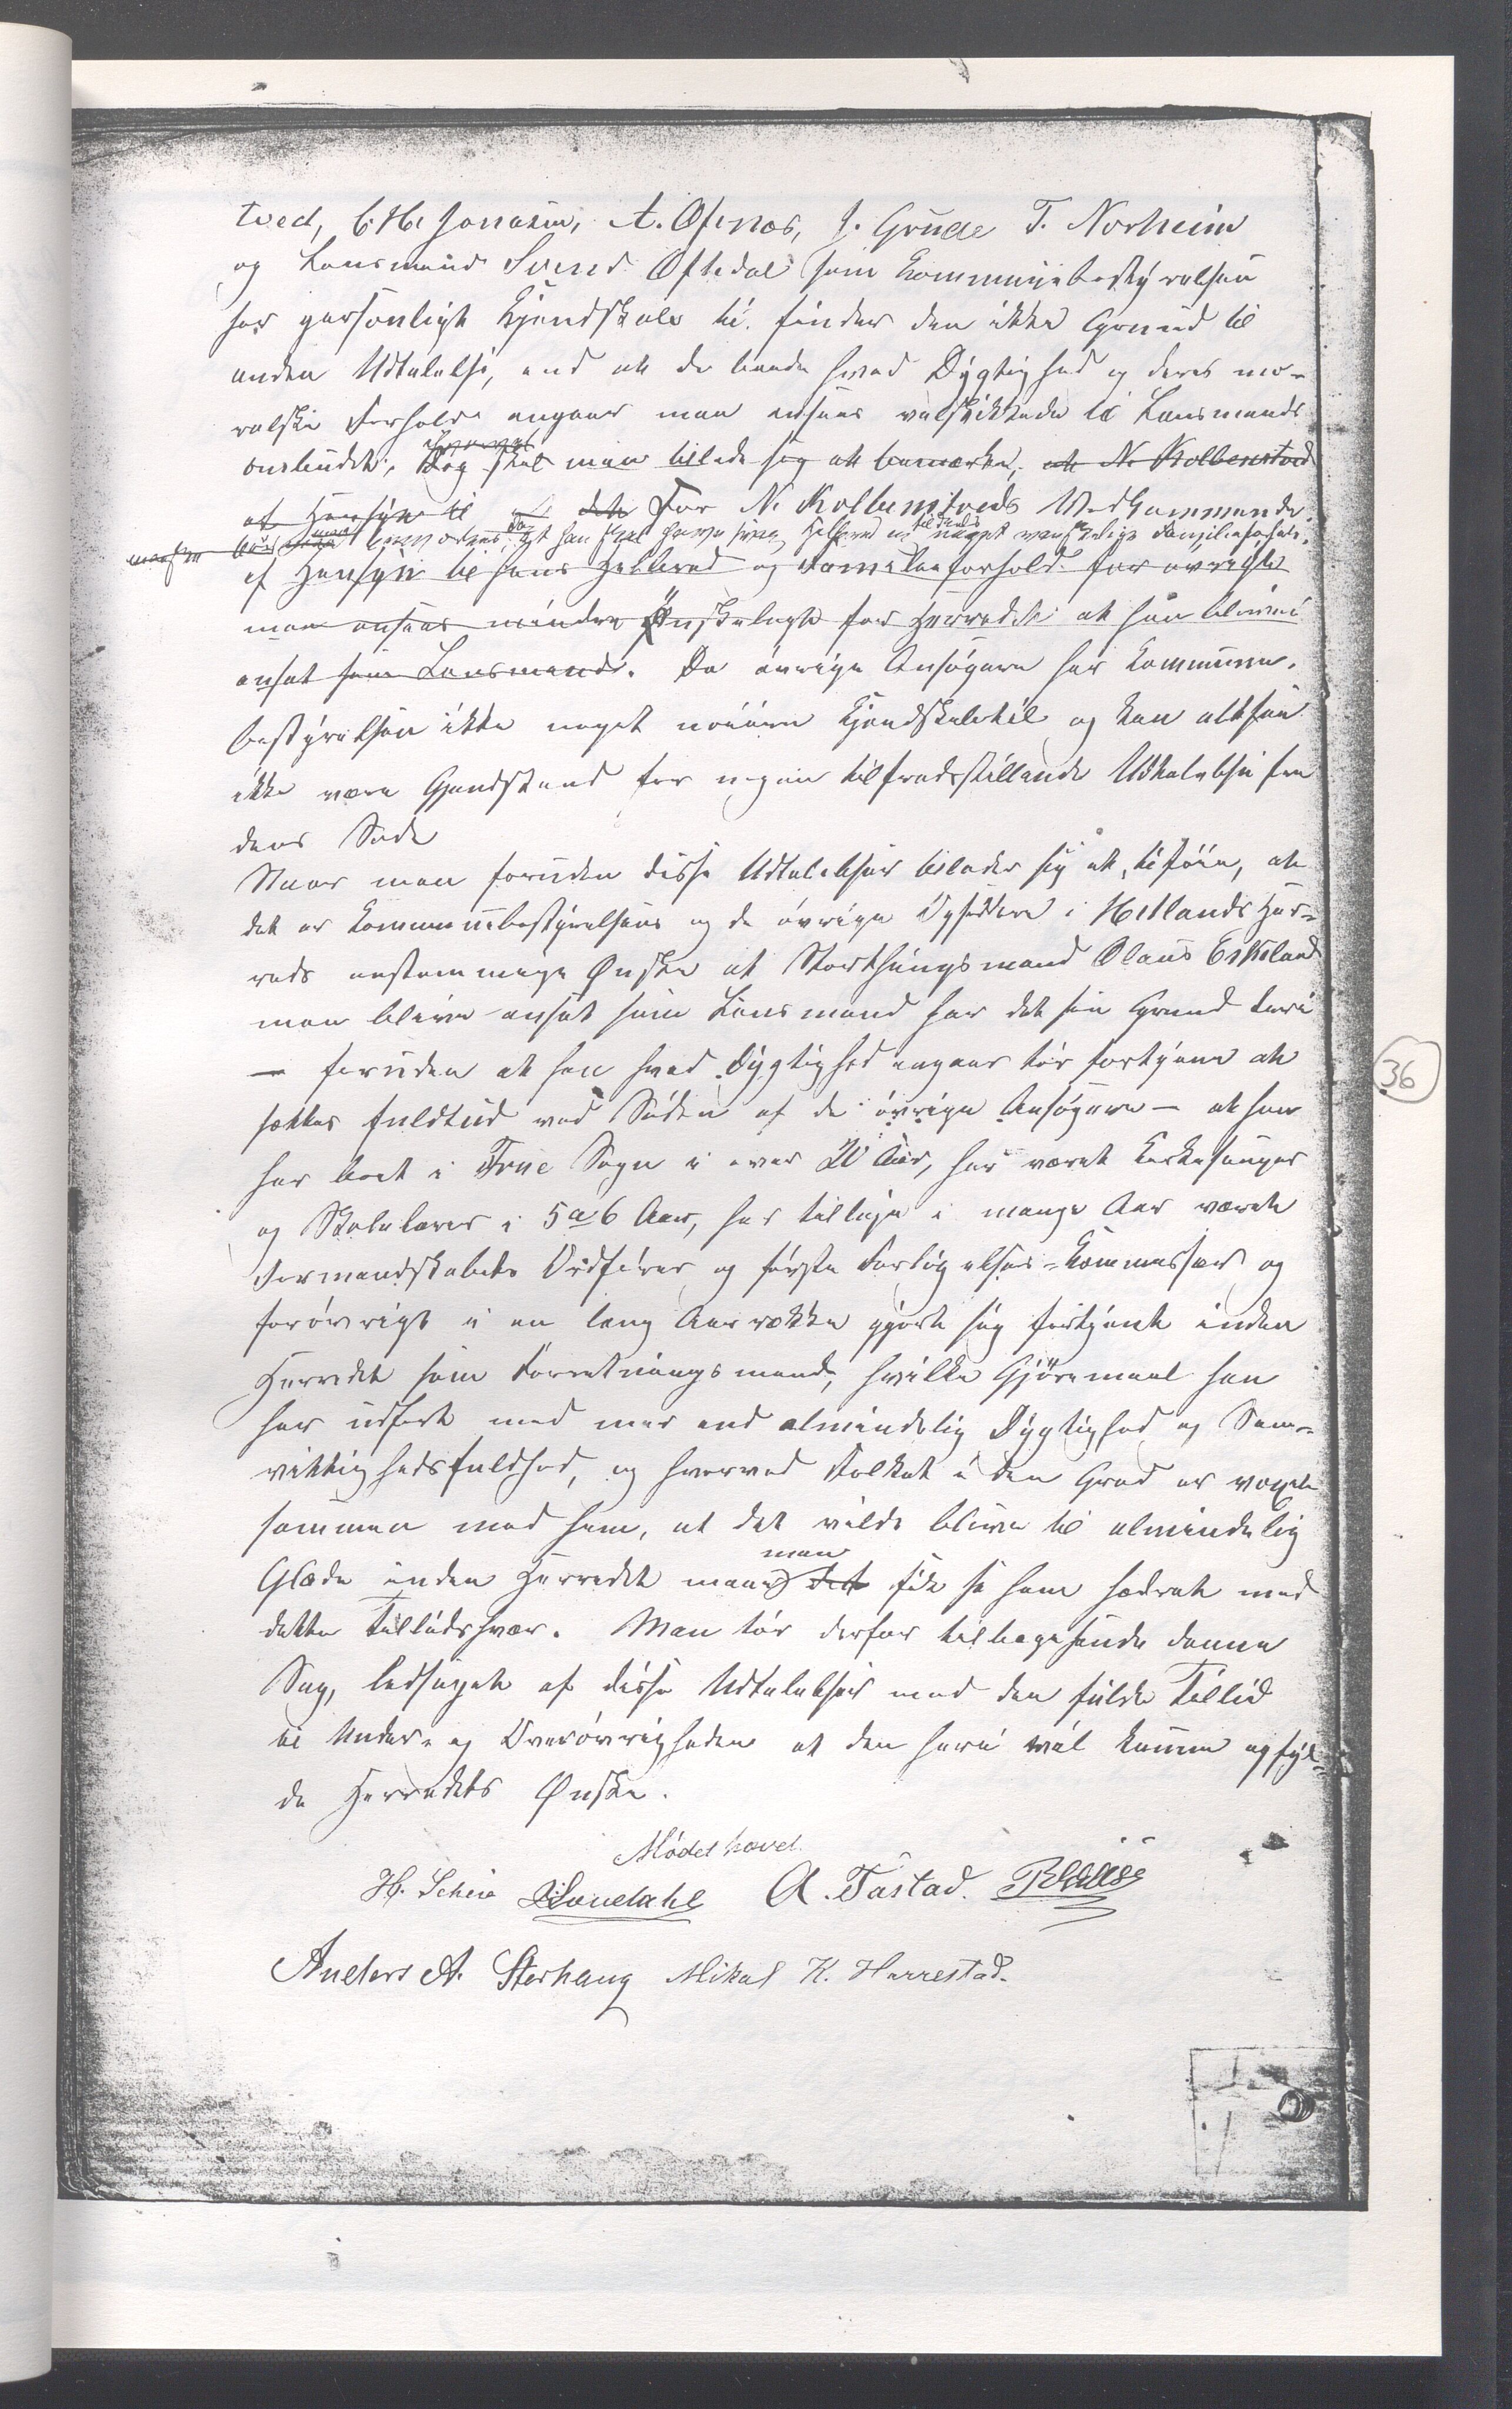 tved, C. H. Jonasen, A. Ofsnos, J. Grude T. Norheim
og Lensmand Svend Oftedal som Kommunebestyrelsen
har personligt Kjendskab til. finder den ikke Grund til
anden Udtalelse, end at de baade hvad Dygtighed og deres mo-
ralske Forhold angaar maa ansees velskikkede til Lensmands
ombudet. Dog skal man tillade sig at bemærke, at N. Kolbenstved
af Hensyn til det For N. Kolbenstveds Vedkommende
bør man bemærkes, at han skal have svag Helbred og tildels noget vanskelige Familieforhold.
af Hensyn til hans Helbred og Familieforhold for øvrigt
maa ansees mindre Ønskeligt for Herredet at han bliver
ansat som Lensmand. De øvrige Ansøgere har Kommune-
bestyrelsen ikke noget nøiere Kjendskab til og kan altsaa
ikke være Gjenstand for nogen tilfredsstillende Udtalelse fra
dens Side
Naar man foruden disse Udtalelser tillader sig at tilføie, at
det er Kommunebestyrelsens og de øvrige Opsiddere i Hetlands Her-
reds eenstemmige Ønske at Storthingsmand Olaus Eskeland
maa blive ansat som Lensmand har det sin Grund deri
— foruden at han hvad Dygtighed angaar tør fortjene at
sættes fuldtud ved Siden af de øvrige Ansøgere — at han
har boet i Frue Sogn i over 20 Aar, har været Kirkesanger
og Skolelærer i 5 a 6 Aar, har tillige i mange Aar været
Formandskabets Ordfører og første Forligelses-Kommissær og
forøvrigt i en lang Aarrække gjort sig fortjent inden
Herredet som Forretningsmand, hvilke Gjøremaal han
har udført med mer end almindelig Dygtighed og Sam-
vittighedsfuldhed, og hvorved Folket i den Grad er voxet
sammen med ham, at det vilde blive til almindelig
Glæde inden Herredet maatte det man fik se ham hædret med
dette Tillidshverv. Man tør derfor tilbagesende denne
Sag, ledsaget af disse Udtalelser med den fulde Tillid
til Under- og Overøvrigheden at den heri vil kunne opfyl-
de Herredets Ønske.
Mødet hævet.
H. Scheie A. Tastad.
Anders A. Storhaug Mikal K. Harrestad.
36